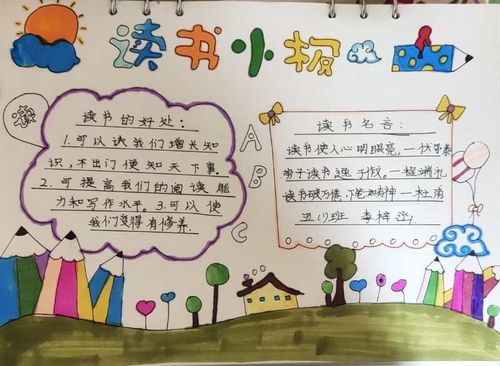 读书小报
读书的好处：
1.可以让我们增长知
识，不出门便知天下事。
2.可提高我们的阅读能
力和写作水平。3.可以使
我们变得有修养.
A
B
C
读书名言：
读书使人心明眼亮。一伏尔泰
劳于读书逸于作。一程端礼
读书破万卷，下笔如有神一杜甫
李梓